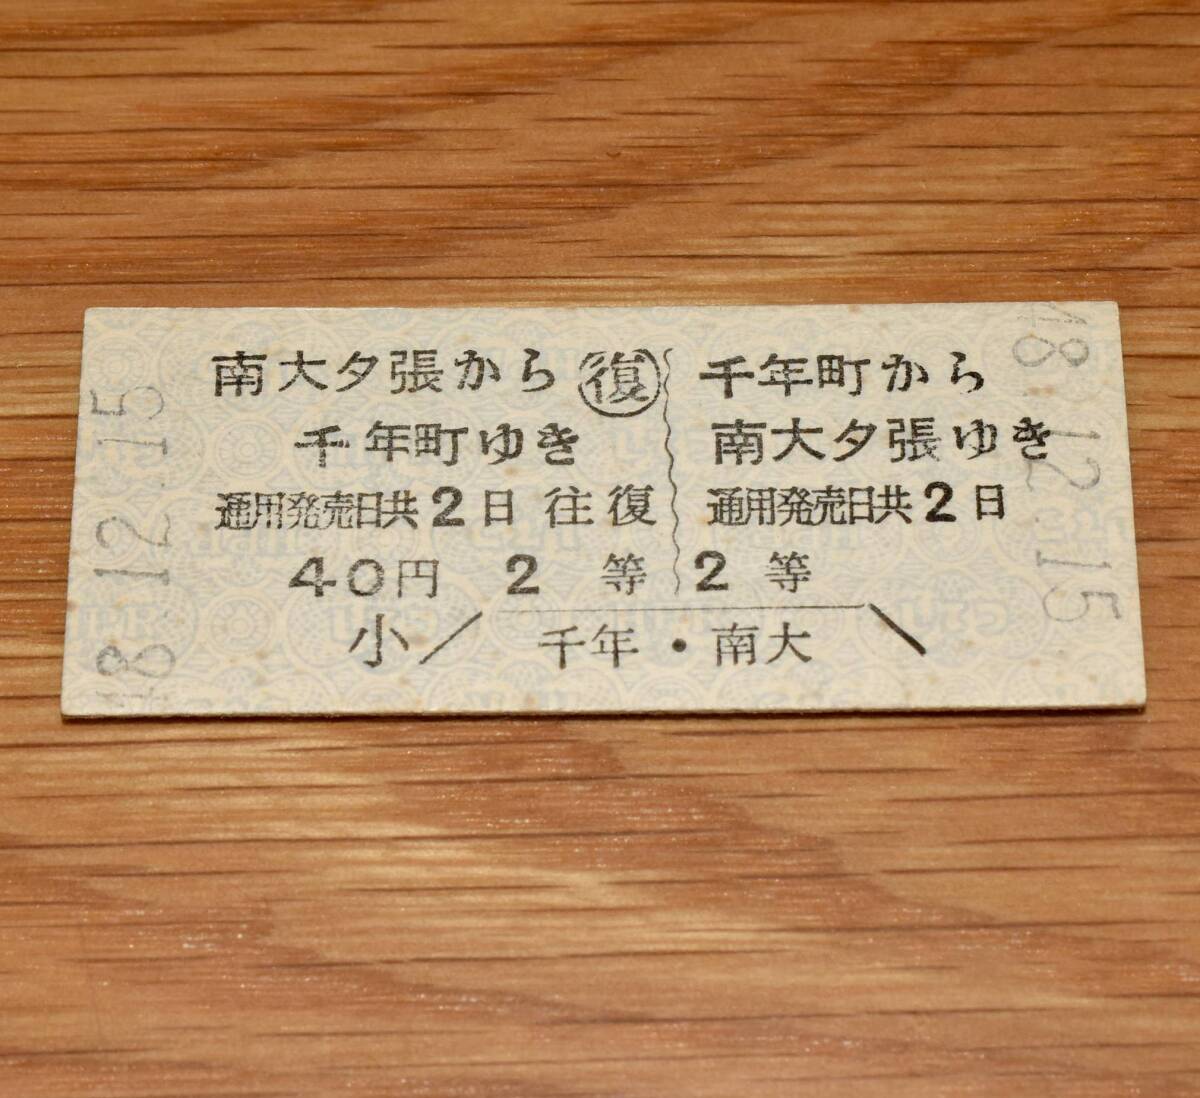 南大夕張から ㊝復
千年町ゆき
通用発売日共2日 往復
40円 2 等
千年町から
南大夕張ゆき
通用発売日共2日
2 等
小 千年・南大
48.12.15
48.12.15